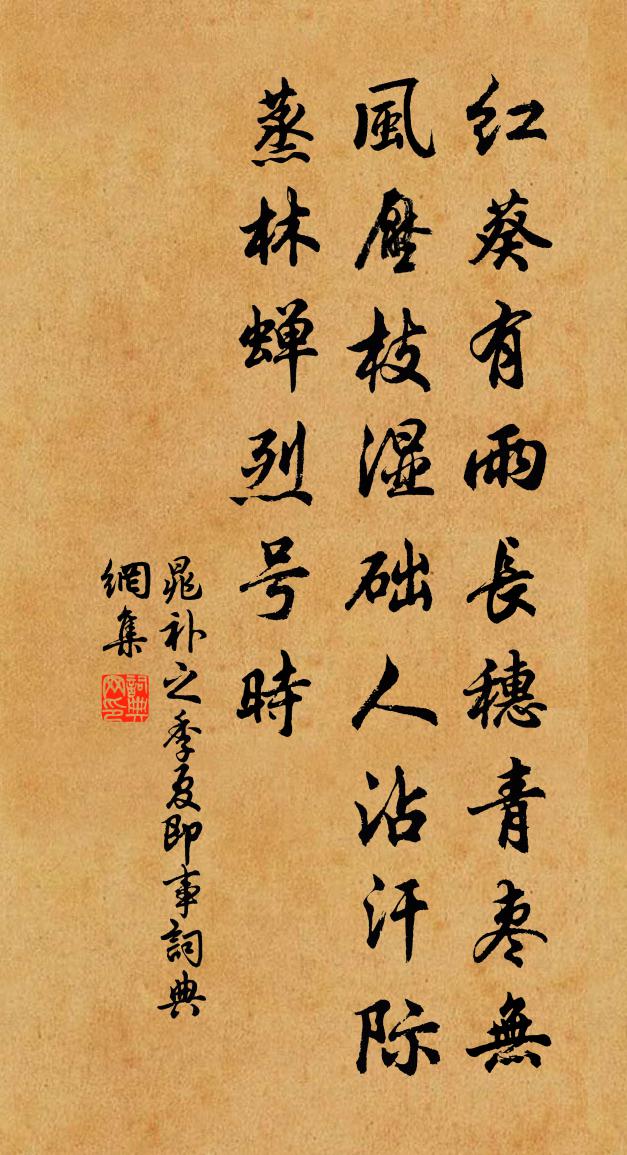 红葵有雨長穗青枣無
風壓枝濕础人沾汗际
蒸林蝉烈号時
晁补之季夏即事詞典
網集
詞典
网印